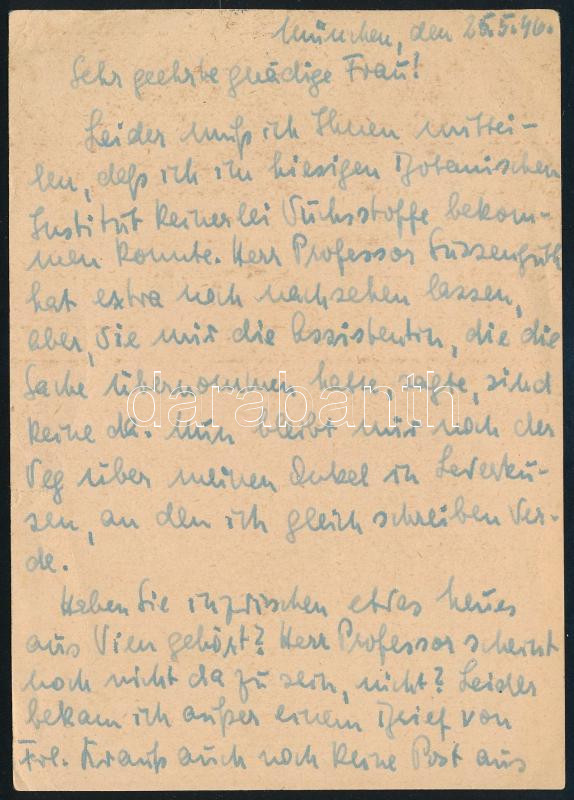 München, den 25.5.46.
Sehr geehrte gnädige Frau!
Leider muß ich Ihnen mittei-
len, daß ich im hiesigen Botanischen
Institut keinerlei Wuchsstoffe bekom-
men konnte. Herr Professor Süssenguth
hat extra noch nachsehen lassen,
aber, wie mir die Assistentin, die die
Sache übernommen hatte, sagte, sind
keine da. Nun bleibt mir noch der
Weg über meinen Onkel in Leverku-
sen, an den ich gleich schreiben wer-
de.
Haben Sie inzwischen etwas neues
aus Wien gehört? Herr Professor scheint
noch nicht da zu sein, nicht? Leider
bekam ich außer einem Brief von
Frl. Krauß auch noch keine Post aus
darabanth